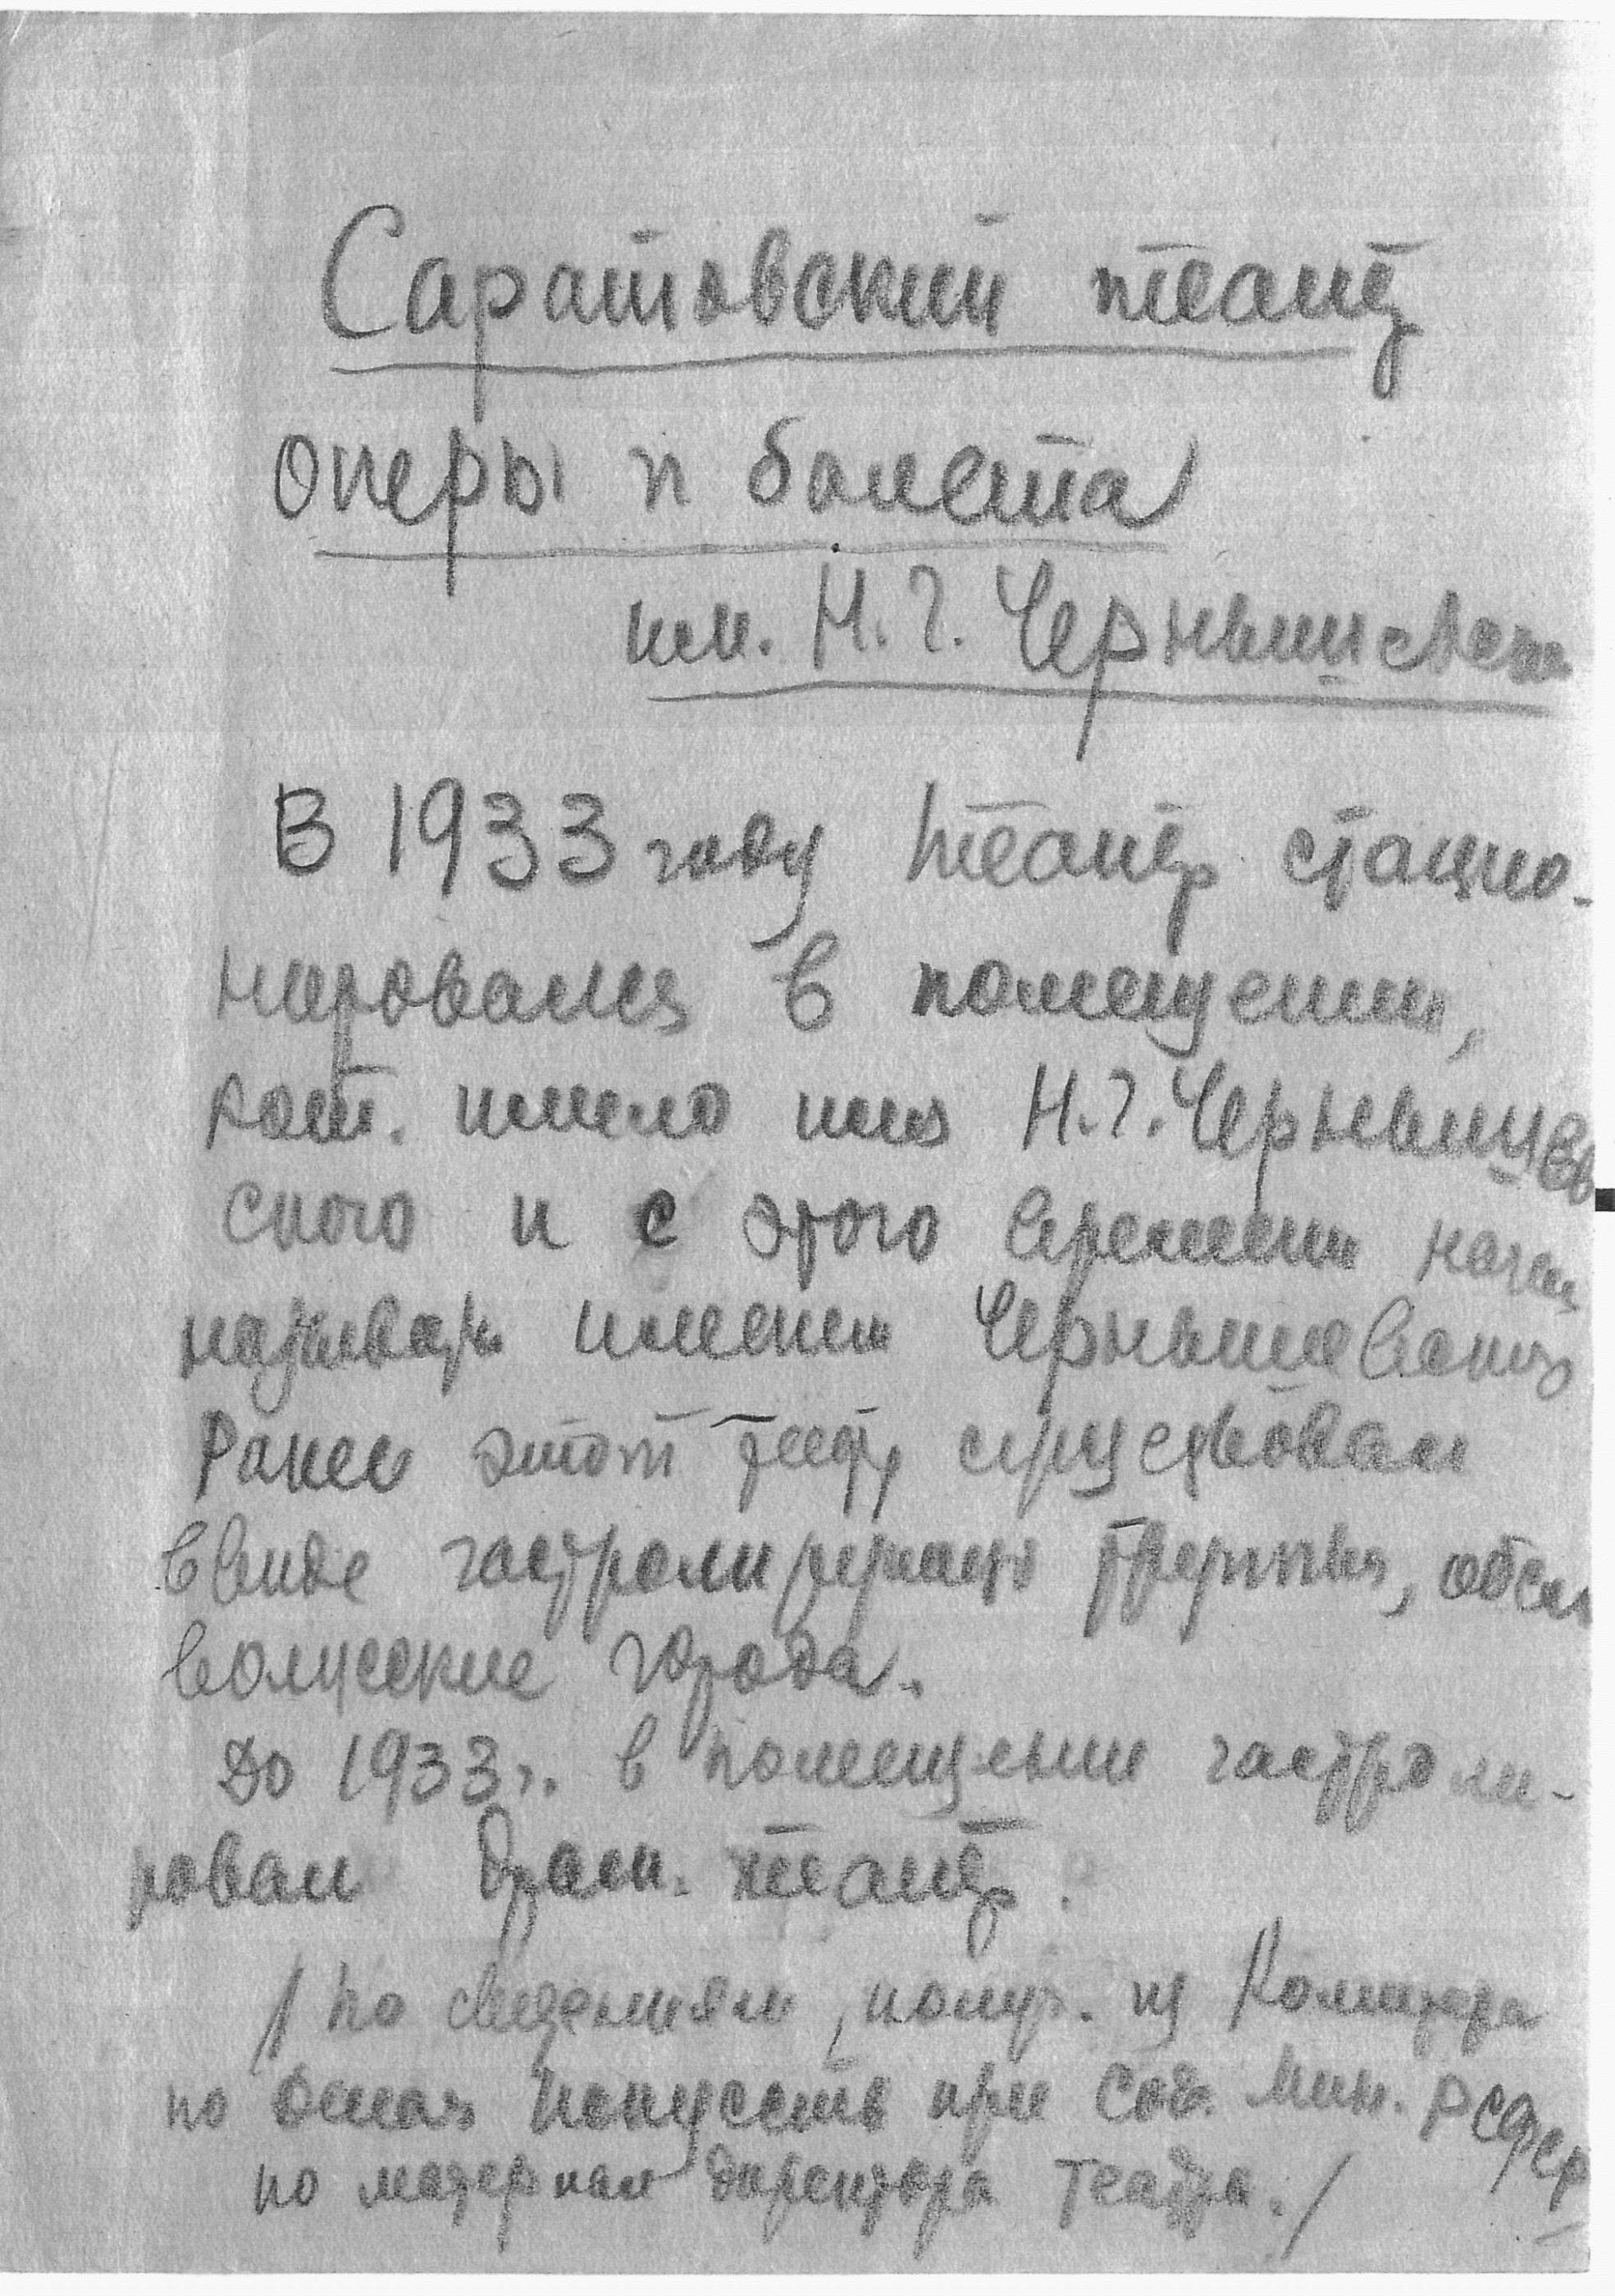 Саратовский театр
оперы и балета
им. Н.Г. Чернышевского
В 1933 году театр стацио-
нировался в помещении,
кот. имело имя Н.Г. Чернышев
ского и с этого времени начал
называться именем Чернышевского
Ранее этот театр существовал
в виде гастролирующей труппы, обсл
волжские города.
До 1933 г. в помещении гастроли-
ровал драм. театр.
/ по сведениям, получ. из Комитета
по делам искусств при Сов. Мин. РСФСР
по матерьалам директора театра. /